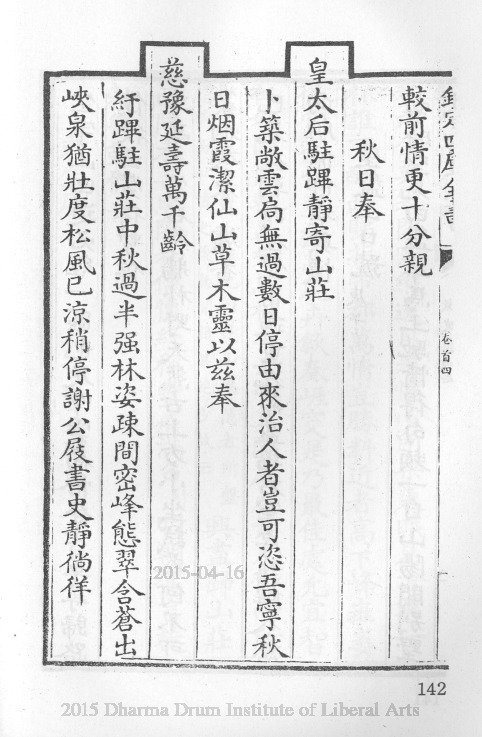 欽定四庫全書
卷首四
較前情更十分親
秋日奉
皇太后駐蹕靜寄山莊
卜築敞雲扃無過數日停由來治人者豈可恣吾寧秋
日烟霞潔仙山草木靈以兹奉
慈豫延壽萬千齡
紆蹕駐山莊中秋過半强林姿疎間密峰態翠含蒼出
峽泉猶壯度松風已涼稍停謝公屐書史靜徜徉
2015-04-16
142
2015 Dharma Drum Institute of Liberal Arts